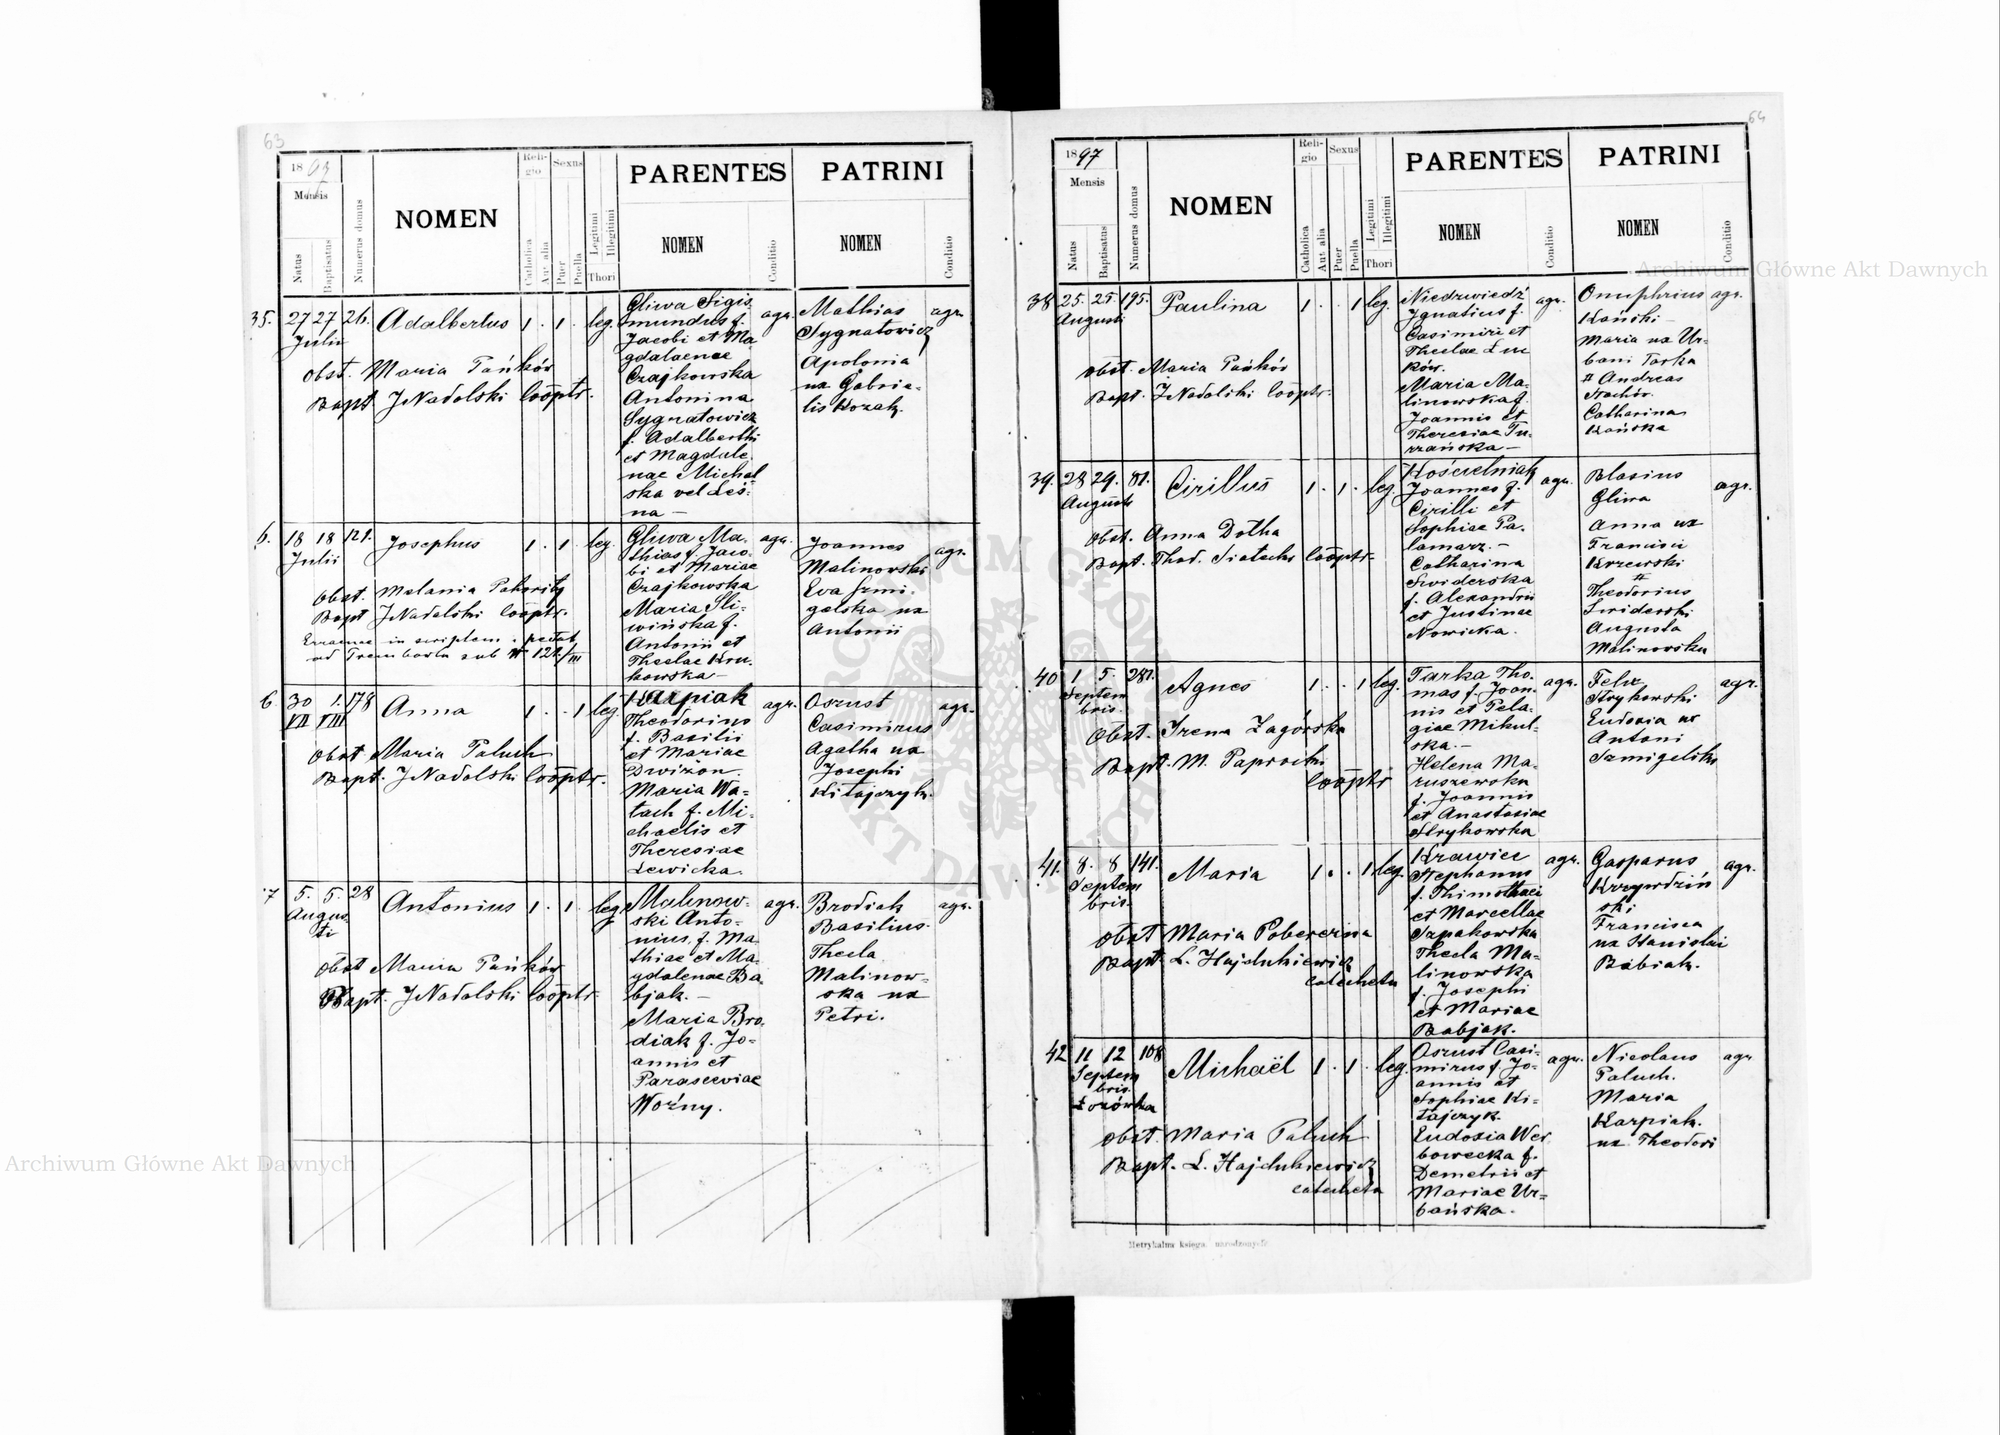 63
1897
Mensis
Natus
Baptisatus
Numerus domus
NOMEN
Religio
Catholica
Aut alia
Sexus
Puer
Puella
Legitimi
Illegitimi
Thori
PARENTES
NOMEN
Conditio
PATRINI
NOMEN
Conditio
35. 27 27 26. Adalbertus 1 . 1 . leg.
Julii
obst. Maria Pańków
Bapt. J Nadolski Coōptr.
Gliwa Sigis-
mundus f.
Jacobi et Ma-
gdalaenae
Czajkowska
Antonina
Sygnatowicz
f. Adalberthi
et Magdale-
nae Michal-
ska vel Leś-
na —
agr.
Mathias
Sygnatowicz
Apolonia
ux Gabrie-
lis Kozak.
agr.
6. 18 18 121. Josephus 1 . 1 . leg.
Julii
Obst. Melania
Bapt J Nadolski Coōptr.
in
ad Trembowla sub N 121/III
Gliwa Ma-
thias f. Jaco-
bi et Mariae
Czajkowska
Maria Śli-
wińska f.
Antonii et
Theclae Kru-
kowska —
agr.
Joannes
Malinowski
Eva Szmi-
gelska ux
Antonii
agr.
6. 30 1. 178 Anna 1 . . 1 leg.
VII VIII
Obst Maria Paluch
Bapt. J Nadolski Coōptr.
Karpiak
Theodorius
f. Basilii
et Mariae
Dwiżon
Maria Wa-
tach f. Mi-
chaelis et
Theresiae
Lewicka.
agr.
Oszust
Casimirus
Agatha ux
Josephi
Kitajczyk.
agr.
7 5. 5. 28 Antonius 1 . 1 . leg.
Augus
ti
Obst Maria Pańków
Bapt. J Nadolski Coōptr.
Malinow-
ski Anto-
nius, f. Ma
thiae et Ma-
gdalenae Ba-
bjak. —
Maria Bro-
diak f. Jo-
annis et
Parasceviae
Woźny.
agr.
Brodiak
Basilius.
Thecla
Malinow-
ska ux
Petri.
agr.
64
1897
Mensis
Natus
Baptisatus
Numerus domus
NOMEN
Religio
Catholica
Aut alia
Sexus
Puer
Puella
Legitimi
Illegitimi
Thori
PARENTES
NOMEN
Conditio
PATRINI
NOMEN
Conditio
38 25. 25. 195. Paulina 1 . . 1 leg.
Augusti
obst. Maria Pańków
Bapt. J Nadolski Coōptr.
Niedzwiedź
Ignatius f.
Casimiri et
Theclae Łuc
ków.
Maria Ma-
linowska f.
Joannis et
Theresiae Tu-
rzańska —
agr.
Onuphrius
Kański —
Maria ux Ur-
bani Tarka
# Andreas
Catharina
Kańska
agr.
39. 28 29. 81. Cirillus 1 . 1 . leg.
Augusti
Obst. Anna Dotha
Bapt. Thad. Coōptr
Kościelniak
Joannes f.
Cirilli et
Sophiae Pa-
lamarz. —
Catharina
Świderska
f. Alexandri
et Justinae
Nowicka.
agr.
Blasius
Gliwa
Anna ux
Francisci
Krzewski
#
Theodorius
Swiderski
Augusta
Malinowska
agr.
40 1 5. 281. Agnes 1 . . 1 leg.
Septem
bris.
Obst. Irena Zagórska
Bapt. M. Paprocki
Coōptr
Tarka Tho-
mas f. Joan-
nis et Pela-
giae Mikul-
ska. —
Helena Ma-
ruszewska
f. Joannis
et Anastasiae
Strykowska
agr.
Felix
Strykowski
Eudoxia ux
Antoni
Szmigelski
agr.
41. 8. 8 141. Maria 1 . . 1 leg.
Septem
bris.
obst Maria Pobereżna
Bapt. L. Hajdukiewicz
catecheta
Krawiec
Stephanus
f. Thimothaei
et Marcellae
Szpakowska
Thecla Ma-
linowska
f. Josephi
et Mariae
Babjak.
agr.
Gasparus
Krzywdziń
ski
Francisca
ux Stanislai
Babiak.
agr.
42 11 12 108 Michaël 1 . 1 . leg.
Septem
bris.
Łozówka
obst. Maria Paluch
Bapt. L. Hajdukiewicz
catecheta
Oszust Casi-
mirus f. Jo-
annis et
Sophiae Ki-
tajczyk.
Eudoxia Wer-
bowecka f.
Demetrii et
Mariae Ur-
bańska.
agr.
Nicolaus
Paluch.
Maria
Karpiak.
ux Theodori
agr
Metrykalna księga narodzonych.
Archiwum Główne Akt Dawnych
Archiwum Główne Akt Dawnych
ARCHIWUM GŁÓWNE AKT DAWNYCH